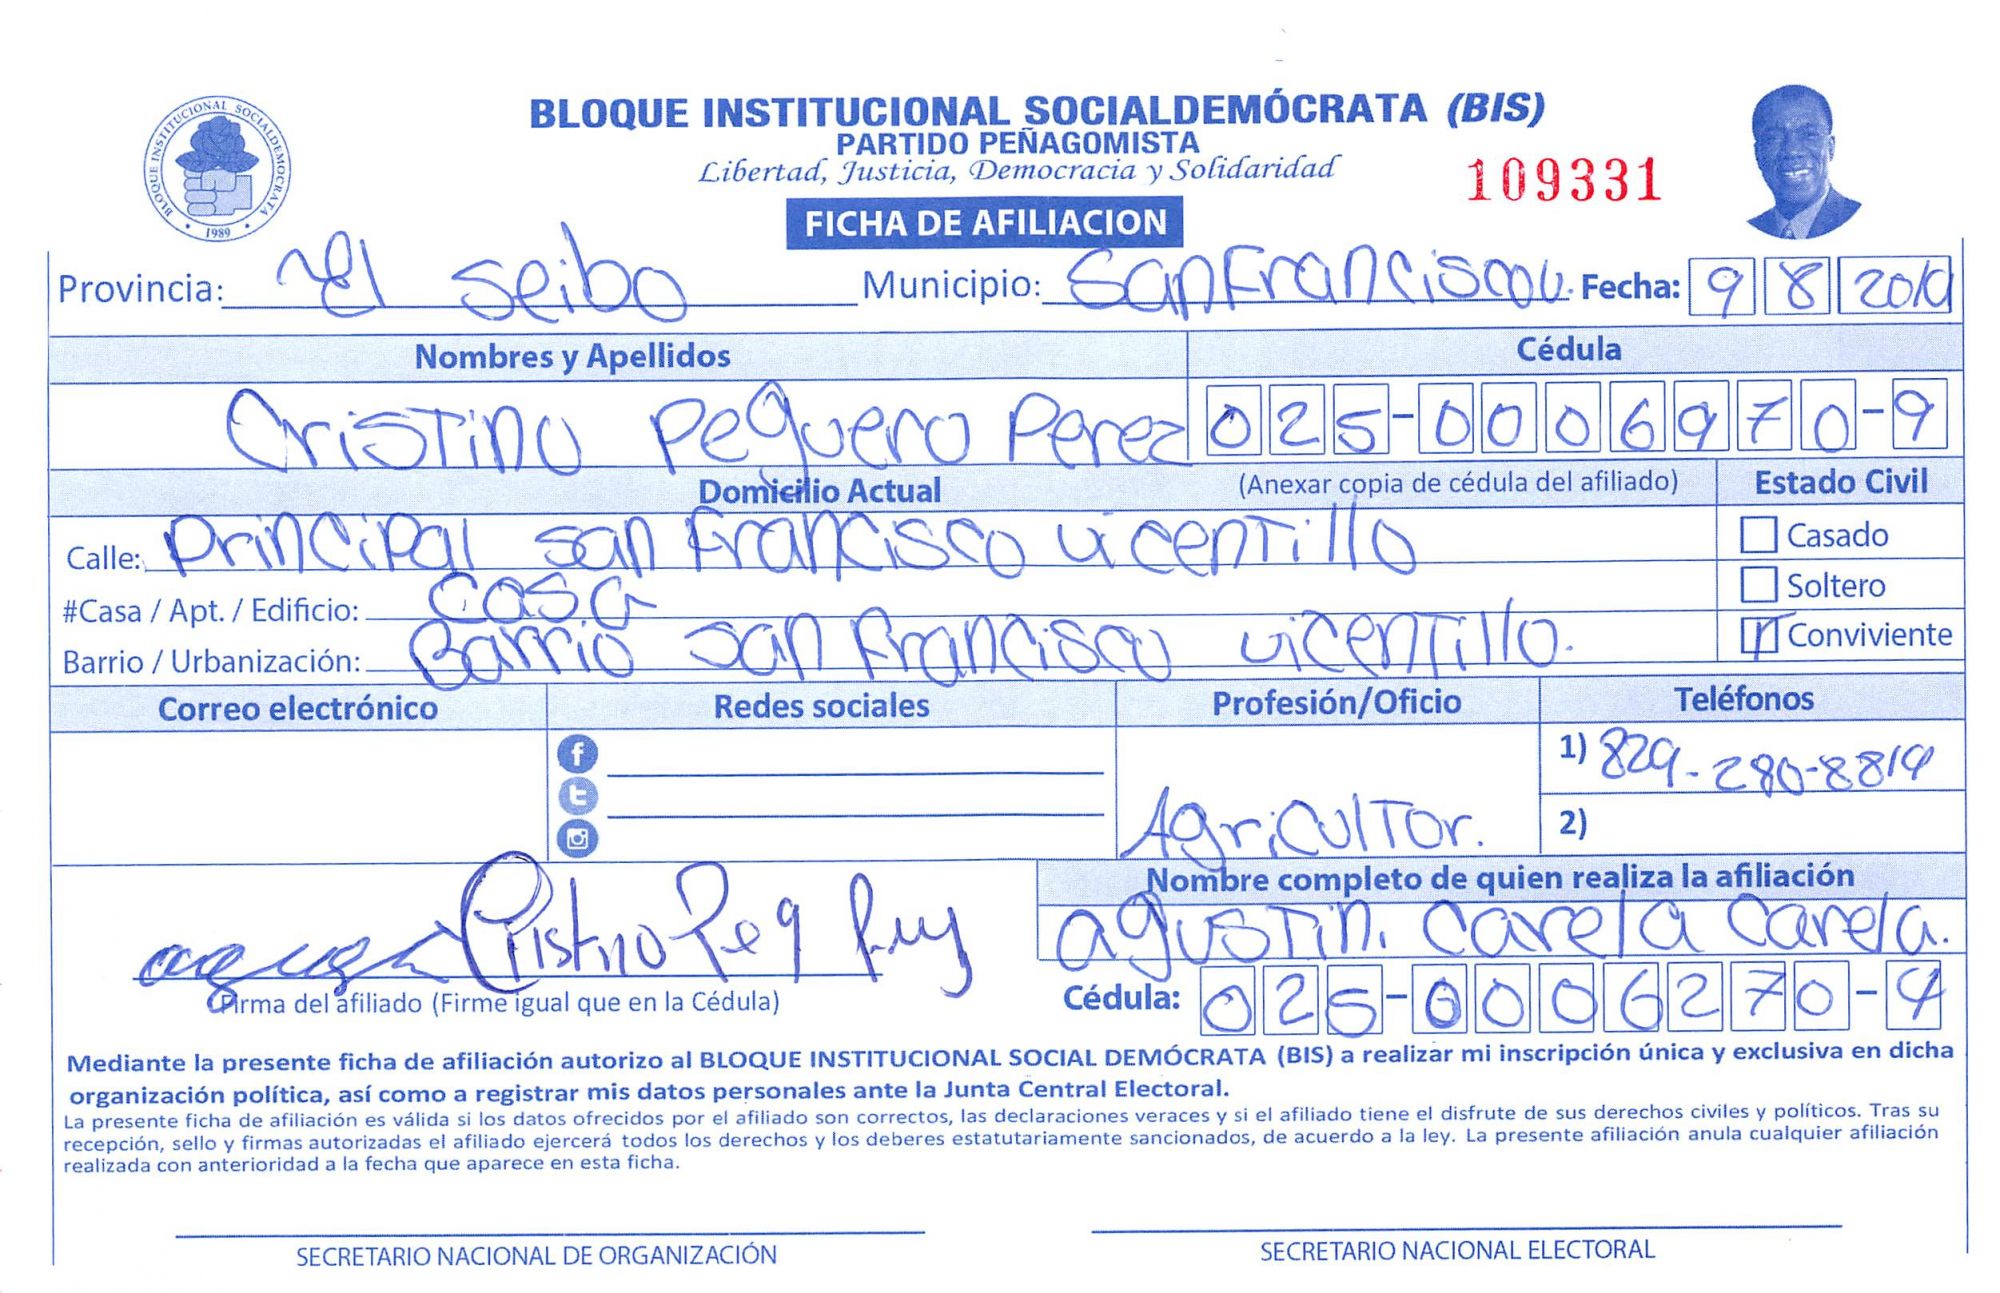 BLOQUE INSTITUCIONAL SOCIALDEMOCRATA
1989
BLOQUE INSTITUCIONAL SOCIALDEMÓCRATA (BIS)
PARTIDO PEÑAGOMISTA
Libertad, Justicia, Democracia y Solidaridad
109331
FICHA DE AFILIACION
Provincia: El Seibo Municipio: San Francisco V. Fecha: 9 8 2019
Nombres y Apellidos Cédula
Cristino Peguero Perez 025-0006970-9
Domicilio Actual (Anexar copia de cédula del afiliado) Estado Civil
Calle: Principal San Francisco Vicentillo Casado
#Casa / Apt. / Edificio: Casa Soltero
Barrio / Urbanización: Barrio San Francisco Vicentillo. Conviviente
Correo electrónico Redes sociales Profesión/Oficio Teléfonos
1) 829-280-8819
Agricultor. 2)
Nombre completo de quien realiza la afiliación
Agustin. Carela Carela.
Cristino Peg
Firma del afiliado (Firme igual que en la Cédula) Cédula: 025-0006270-4
Mediante la presente ficha de afiliación autorizo al BLOQUE INSTITUCIONAL SOCIAL DEMÓCRATA (BIS) a realizar mi inscripción única y exclusiva en dicha
organización política, así como a registrar mis datos personales ante la Junta Central Electoral.
La presente ficha de afiliación es válida si los datos ofrecidos por el afiliado son correctos, las declaraciones veraces y si el afiliado tiene el disfrute de sus derechos civiles y políticos. Tras su
recepción, sello y firmas autorizadas el afiliado ejercerá todos los derechos y los deberes estatutariamente sancionados, de acuerdo a la ley. La presente afiliación anula cualquier afiliación
realizada con anterioridad a la fecha que aparece en esta ficha.
SECRETARIO NACIONAL DE ORGANIZACIÓN SECRETARIO NACIONAL ELECTORAL